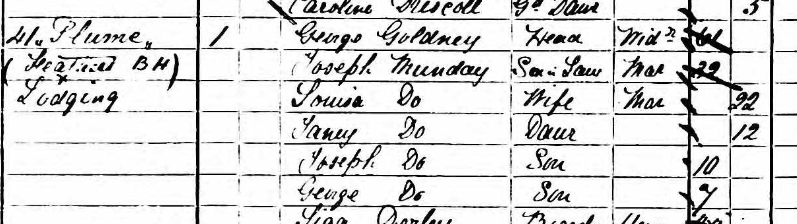 Caroline Driscoll Gd Daur 5
41 "Plume" 1 George Goldney Head Widr 61
(Feathers BH) Joseph Munday Son-Law Mar 32
Lodging Louisa Do Wife Mar 32
Do Daur 12
Joseph Do Son 10
George Do Son 7